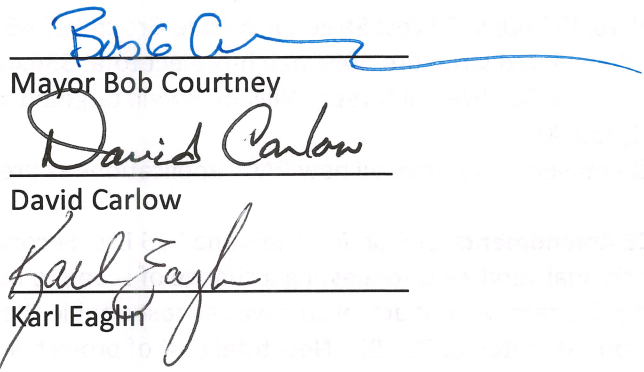 Bob G C
Mayor Bob Courtney
David Carlow
David Carlow
Karl Eaglin
Karl Eaglin